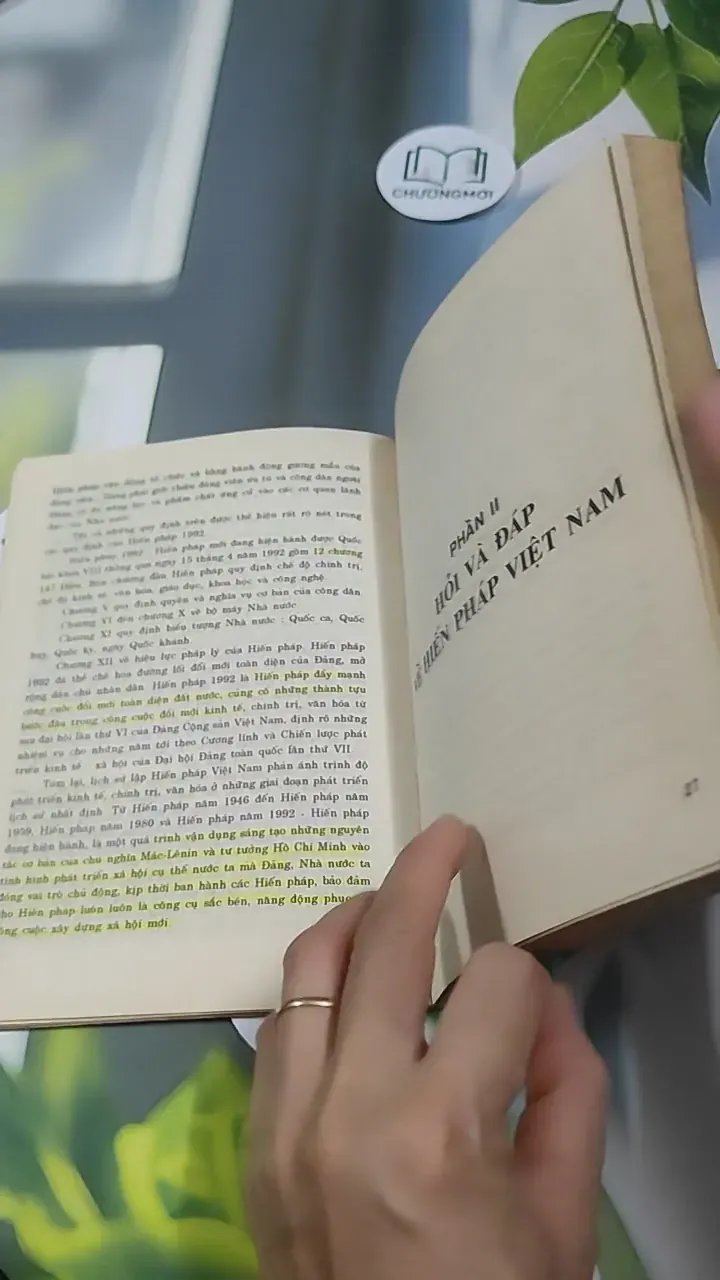 CHƯƠNGMỚI
Hiến pháp vận động tổ chức và bằng hành động gương mẫu của
đảng viên. Đảng phải giới thiệu đảng viên ưu tú và công dân ngoài
Đảng có đủ năng lực và phẩm chất ứng cử vào các cơ quan lãnh
đạo của Nhà nước
Tất cả những quy định trên được thể hiện rất rõ nét trong
các quy định của Hiến pháp 1992.
Hiến pháp 1992 Hiến pháp mới đang hiện hành được Quốc
hội khóa VIII thông qua ngày 15 tháng 4 năm 1992 gồm 12 chương
147 Điều. Ba chương đầu Hiến pháp quy định chế độ chính trị,
chế độ kinh tế, văn hóa, giáo dục, khoa học và công nghệ
Chương V quy định quyền và nghĩa vụ cơ bản của công dân
Chương VI đến chương X về bộ máy Nhà nước
Chương XI quy định biểu tượng Nhà nước : Quốc ca, Quốc
huy, Quốc kỳ, ngày Quốc khánh.
Chương XII về hiệu lực pháp lý của Hiến pháp. Hiến pháp
1992 đã thể chế hóa đường lối đổi mới toàn diện của Đảng, mở
rộng dân chủ nhân dân Hiến pháp 1992 là Hiến pháp đẩy mạnh
công cuộc đổi mới toàn diện đất nước, củng cố những thành tựu
bước đầu trong công cuộc đổi mới kinh tế, chính trị, văn hóa từ
sau đại hội lần thứ VI của Đảng Cộng sản Việt Nam, định rõ những
nhiệm vụ cho những năm tới theo Cương lĩnh và Chiến lược phát
triển kinh tế xã hội của Đại hội Đảng toàn quốc lần thứ VII
Tóm lại, lịch sử lập Hiến pháp Việt Nam phản ánh trình độ
phát triển kinh tế, chính trị, văn hóa ở những giai đoạn phát triển
lịch sử nhất định Từ Hiến pháp năm 1946 đến Hiến pháp năm
1959, Hiến pháp năm 1980 và Hiến pháp năm 1992 - Hiến pháp
đang hiện hành, là một quá trình vận dụng sáng tạo những nguyên
tắc cơ bản của chủ nghĩa Mác-Lênin và tư tưởng Hồ Chí Minh vào
tình hình phát triển xã hội cụ thể nước ta mà Đảng, Nhà nước ta
đóng vai trò chủ động, kịp thời ban hành các Hiến pháp, bảo đảm
cho Hiến pháp luôn luôn là công cụ sắc bén, năng động phục
công cuộc xây dựng xã hội mới.
PHẦN II
HỎI VÀ ĐÁP
VỀ HIẾN PHÁP VIỆT NAM
27